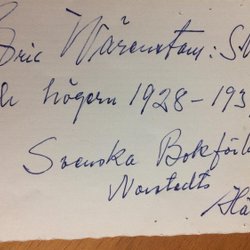 Eric Wärenstam: S
högern 1928-193
Svenska Bokförl
Norstedts